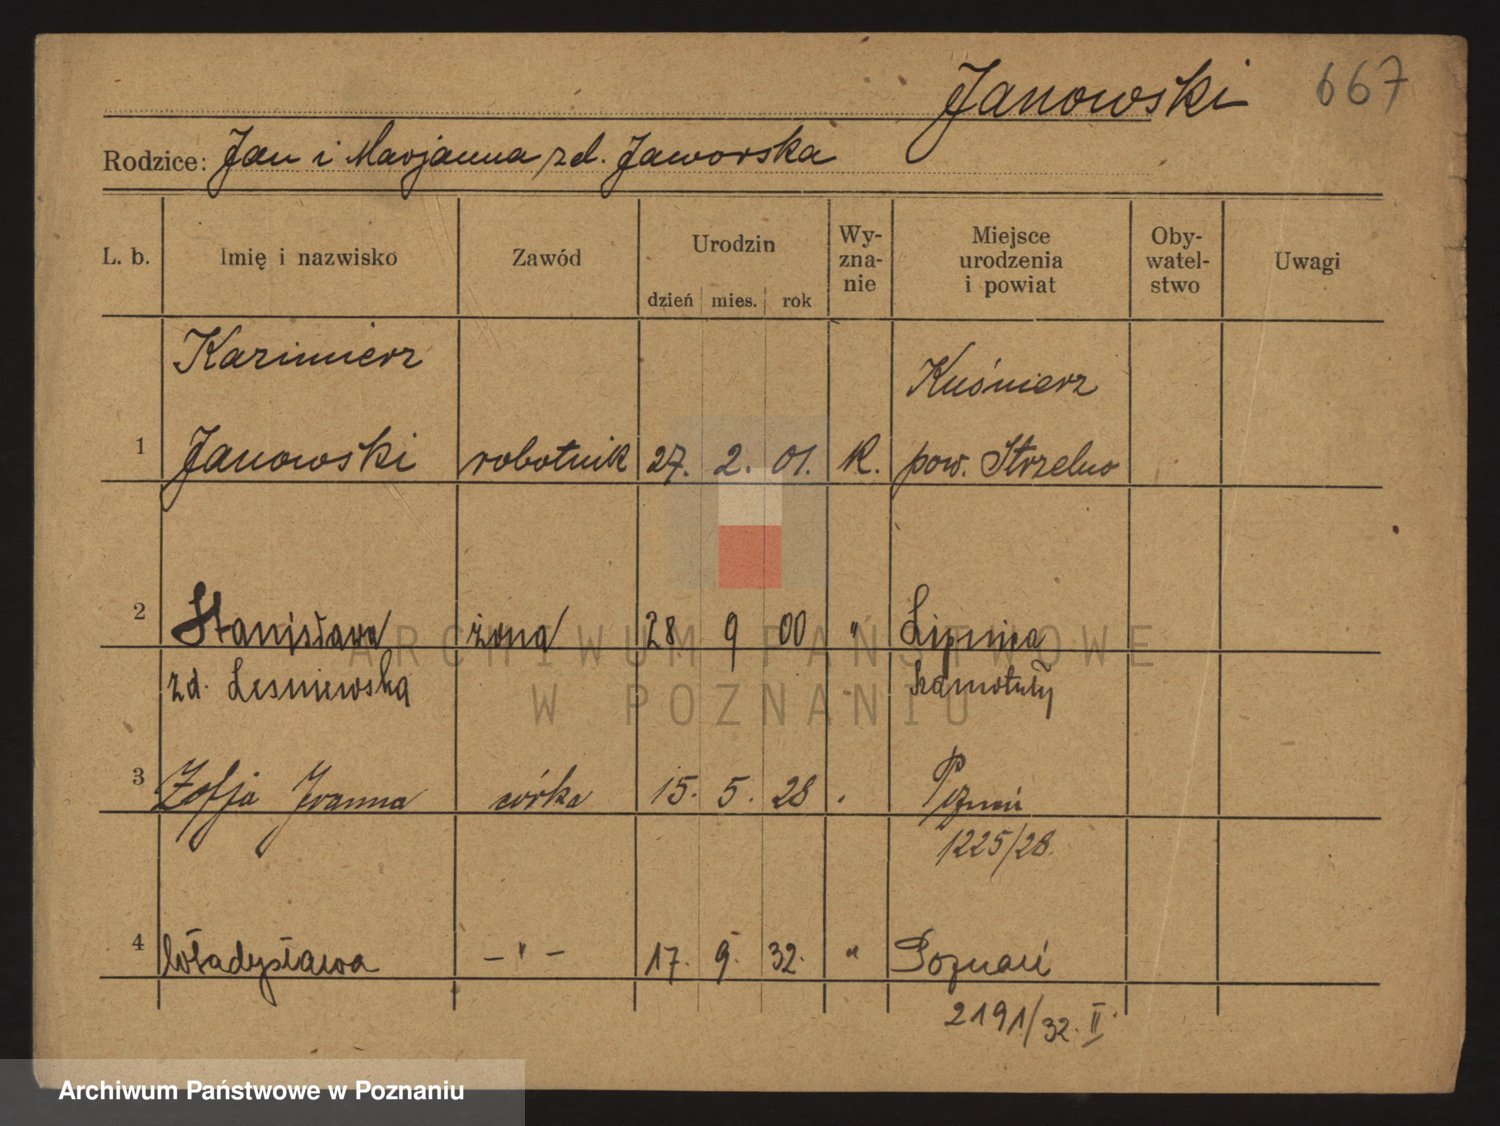 Janowski 667
Rodzice: Jan i Marjanna zd. Jaworska
L. b. Imię i nazwisko Zawód Urodzin dzień mies. rok Wy-zna-nie Miejsce urodzenia i powiat Oby-watel-stwo Uwagi
Kazimierz Kuśnierz
1 Janowski robotnik 27. 2. 01. R. pow. Strzelno
2 Stanisława żona 28 9 00 " Lipnica
zd. Lesniewska Szamotuły
3 Zofja Joanna córka 15. 5. 28 " Poznań
1225/28.
4 Władysława -"- 17. 9. 32. " Poznań
2191/32. II.
ARCHIWUM PAŃSTWOWE
W POZNANIU
Archiwum Państwowe w Poznaniu